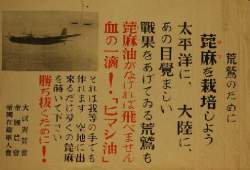 荒鷲のために
蓖麻を栽培しよう
太平洋に、大陸に、
あの目覚ましい
戦果をあげてゐる荒鷲も
蓖麻油がなければ飛べません
血の一滴!「ヒマシ油」
それは我等の手でも
作れます。空地に出
来るだけ多くの蓖麻
を蒔いて下さい
勝ち抜くために!!
大日本
帝国在郷軍人會